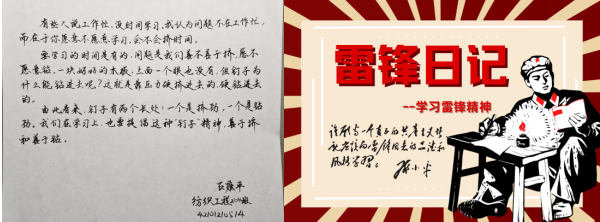 有些人说工作忙、没时间学习,我认为问题不在工作忙,
而在于你愿意不愿意学习,会不会挤时间。
要学习的时间是有的,问题是我们善不善于挤,愿不
愿意钻。一块好好的木板,上面一个眼也没有,但钉子为
什么能钻进去呢?这就是靠压力硬挤进去的,硬钻进去
的。
由此看来,钉子有两个长处:一个是挤劲,一个是钻
劲。我们在学习上,也要提倡这种"钉子"精神,善于挤
和善于钻。
纺织工程
雷锋日记
--学习雷锋精神
谁愿当一个真正的共产主义者
就应该向雷锋同志的品德和
风格学习。
邓小平